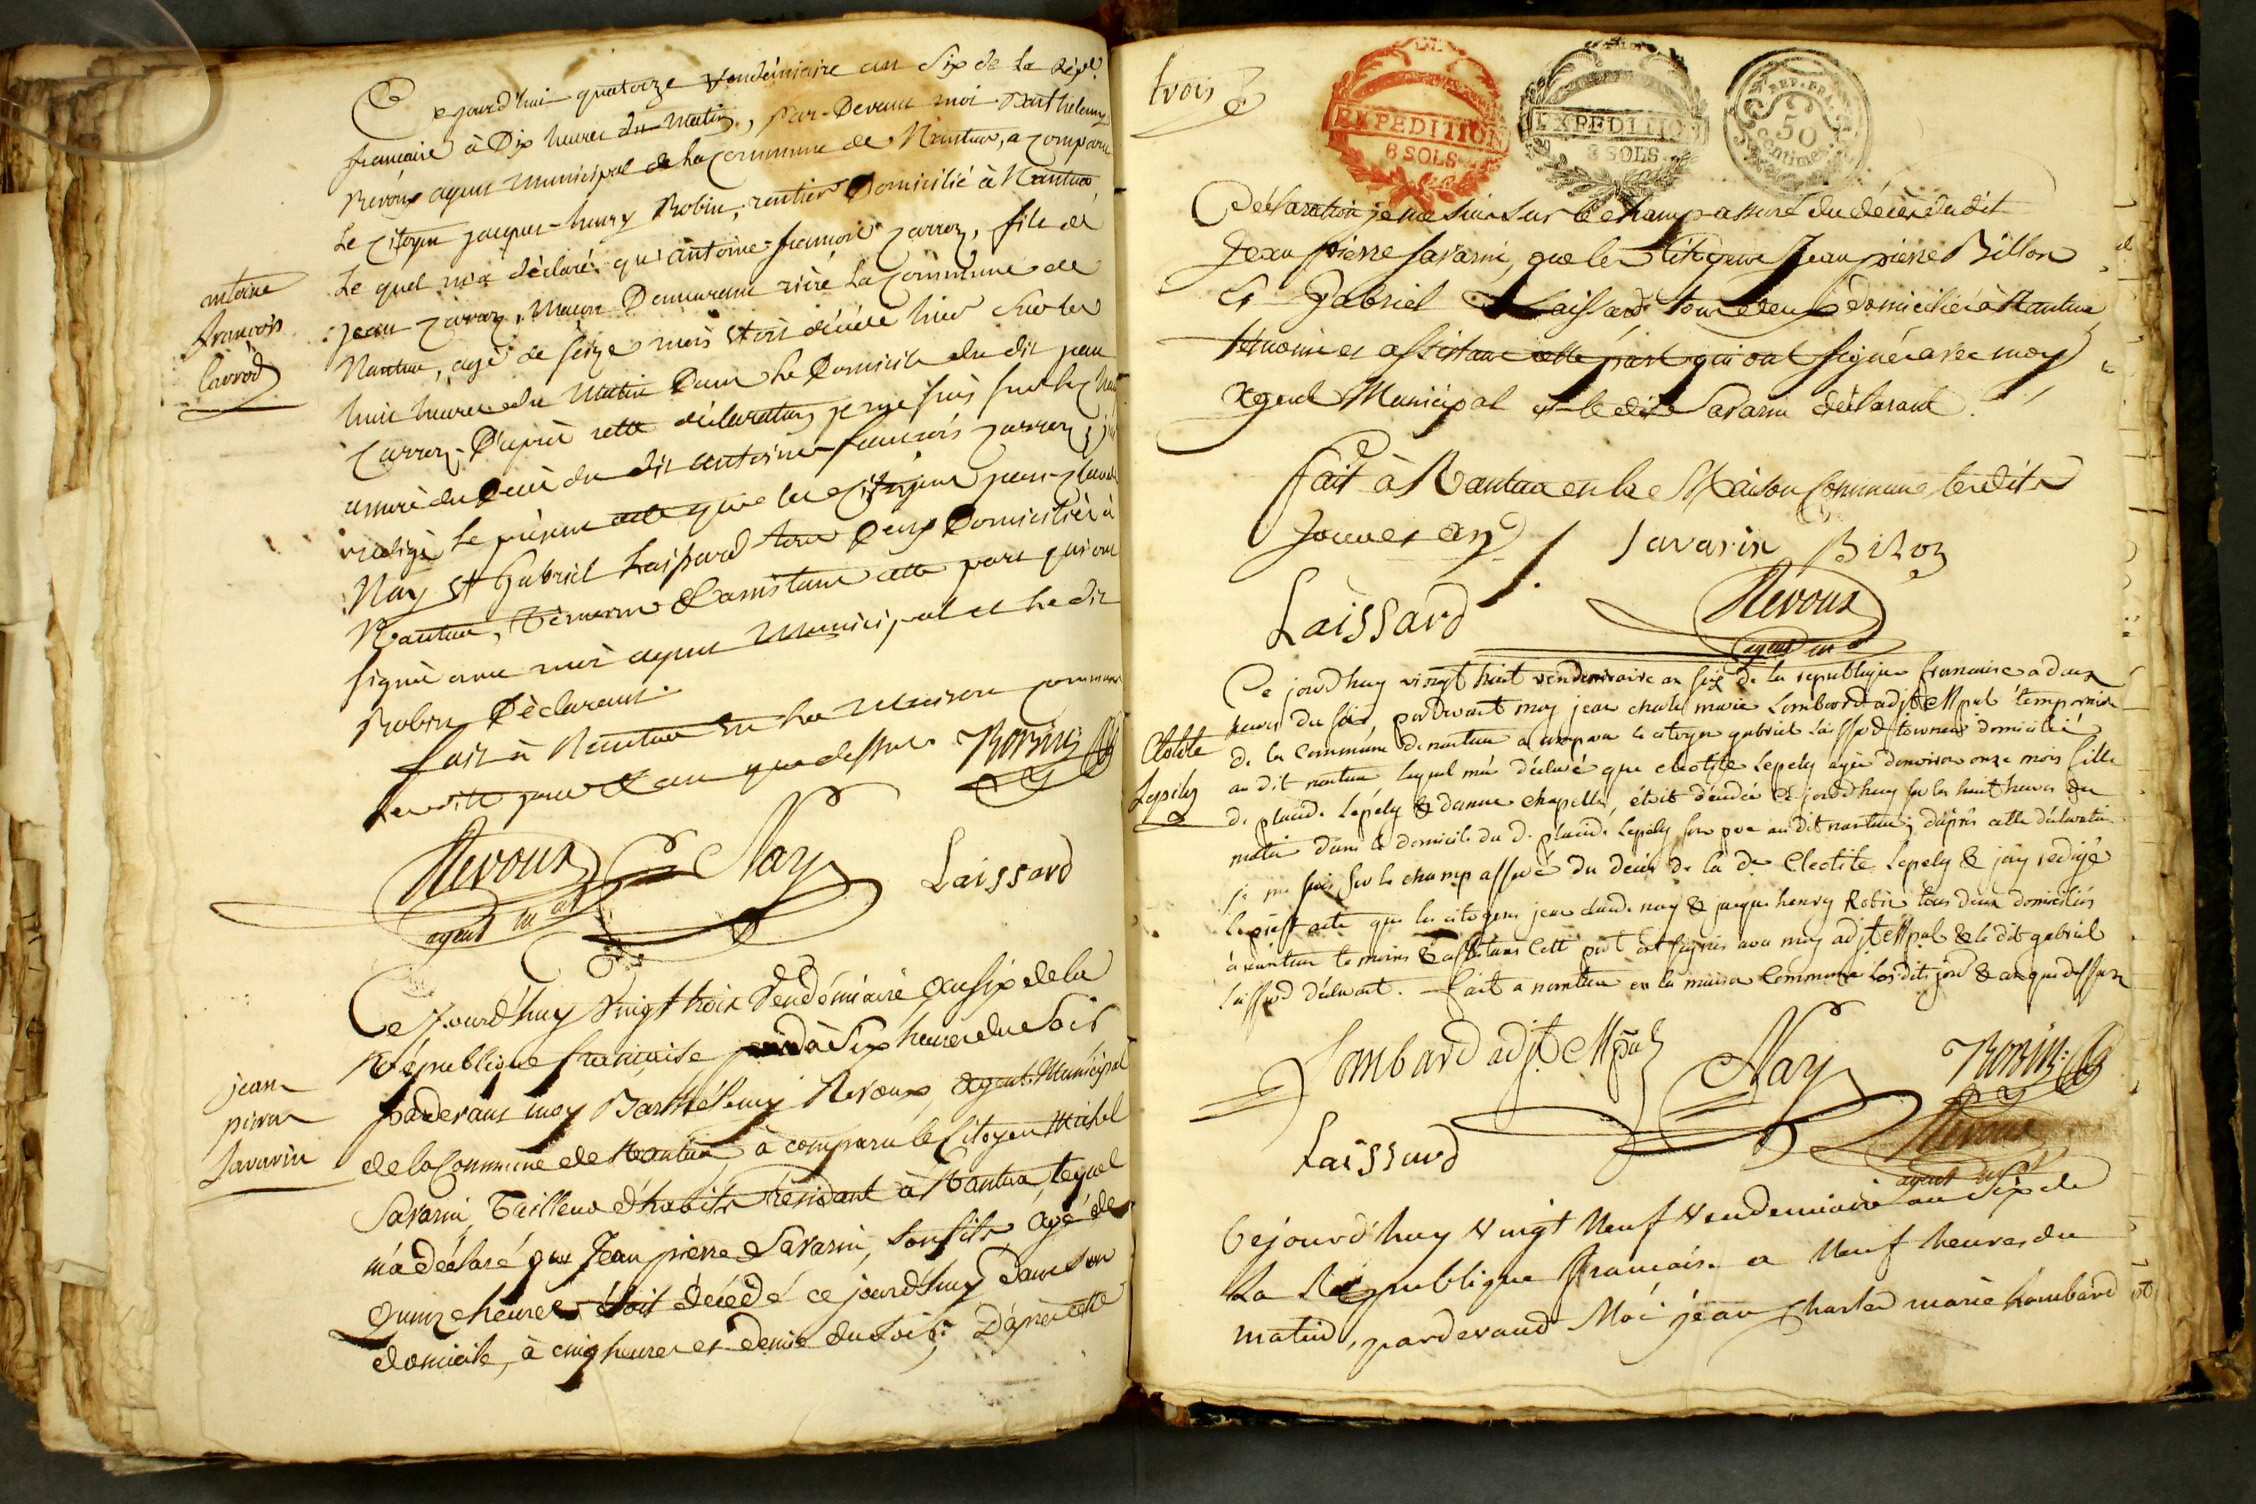 Ce jourd'hui quatorze vendémiaire an Six de la Répe
francaise à Dix heures du matin, Par-Devant moi Barthelemy
Revoux agent municipal de la Commune de Nantua, a comparu
Le Citoyen jacques-henry Robin, rentier Domicilié à Nantua,
Le quel m'a déclaré qu'antoine-francois Carroz, fils de
jean Carroz, Maçon Demeurant rière La Commune de
Nantua, agé de seize mois étoit décédé hier sur les
huit heures du Matin Dans Le Domicile du dit jean
Carroz, D'après cette déclaration je me suis sur le champ
assuré du Décès du dit antoine-francois Carroz, j'ai
rédigé Le présent acte que les Citoyens jean-claude
Nay et Gabriel Laissard tous Deux Domiciliés à
Nantua, témoins & assistans cette part qui ont
signé avec moi agent Municipal et Le dit
Robin Déclarant.
fait à Nantua en La Maison commune
Lesdits jour & an que dessus. ROBIN
antoine
francois
Carrod
Revoux Nay Laissard
agent mal
Ce jourd'huy vingt trois Vendémiaire, an six de la
République francaise, à Six heures du Soir
pardevant moy Barthélemy Revoux, agent Municipal
de la Commune de Nantua, à comparu le Citoyen Michel
Savarin, Tailleur d'habits résidant à Nantua, lequel
m'a déclaré que Jean pierre Savarin, son fils, agé de
quinze heures étoit décédé ce jourd'huy dans son
domicile, à cinq heures et demie du Soir; D'après cette
jean
pierre
Savarin
trois 3
EXPEDITION
6 SOLS
EXPEDITION
3 SOLS
REP. FRA.
50
Centimes
Déclaration je me suis sur le champ assuré du décès dudit
Jean pierre Savarin, que les Citoyens Jean pierre Billon
et Gabriel Laissard tous deux domiciliés à Nantua
témoins et assistans cette part qui ont signé avec moy
Agent Municipal et le dit Savarin déclarant.
fait à Nantua en la Maison Commune lesdits
Jour et an Savarin Biloz
Laissard Revoux
agent mal
Ce jourdhuy vingt huit vendemiaire an six de la republique francaise a deux
heures du soir, pardevant moy jean charle marie Lombard adjt Mpal temporaire
de la Commune de nantua a comparu le citoyen gabriel Laissard tourneur domicilié
au dit nantua lequel m'a déclaré que clotilte Lepely agée d'environ onze mois fille
de placide Lepely & danne chapelle, étoit décédée ce jourdhuy sur les huit heures du
matin dans le domicile du d. placide Lepely son pere au dit nantua; d'après cette déclaration
je me suis sur le champ assuré du décès de la de Clotilte Lepely & j'ay redigé
le présent acte que les citoyens jean claude nay & jaques henry Robin tous deux domiciliés
à nantua temoins & assistans cette part ont signés avec moy adjt Mpal & le dit gabriel
Laissard déclarant. fait a nantua en la maison Commune lesdits jour & an que dessus
Clotilte
Lepely
Lombard adjt Mpal Nay ROBIN
Laissard Revoux
agent mal
Cejourd'huy vingt Neuf vendemiaire an Six de
La République francaise a Neuf heures du
matin, pardevand Moi jean Charles marie Lombard